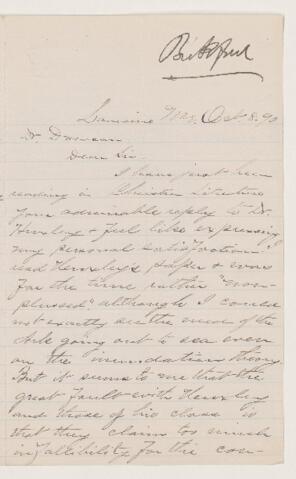 Oct 8. 90
Dr. Dawson
Dear Sir
I have just been
reading in Christian Literature
your admirable reply to Dr.
Huxley & feel like expressing
my personal satisfaction. I
read Huxley's paper & was
for the time rather "non-
plussed" although I could
not exactly see the move of the
Ark going out to sea even
on the inundation theory
But it seems to me that the
great fault with Huxley
and those of his class is
that they claim too much
infallibility for the con-